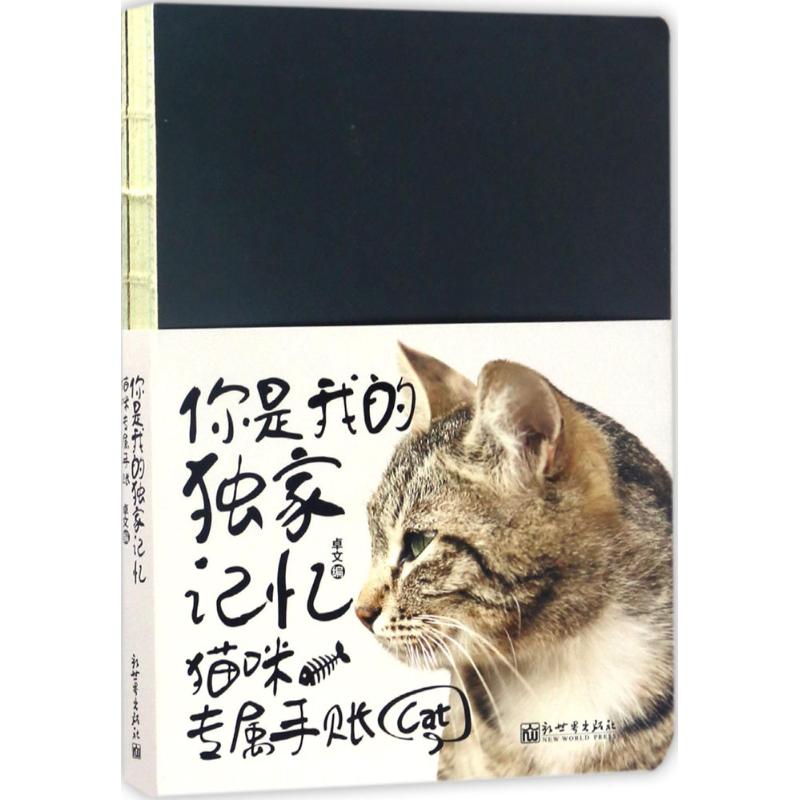 你是我的
独家
记忆
卓文 编
猫咪
专属手账 Cat
新世界出版社
NEW WORLD PRESS
你是我的独家记忆
猫咪专属手账 卓文 编
新世界出版社